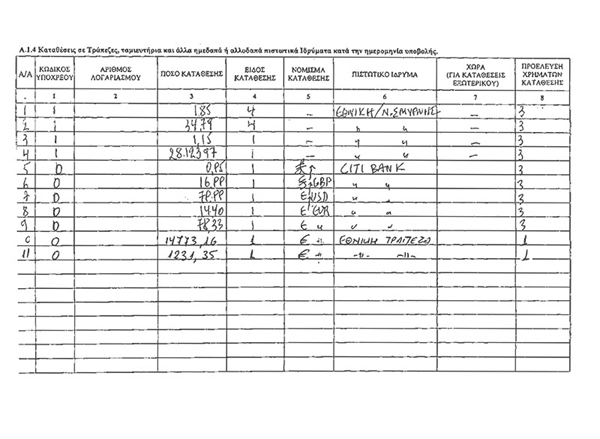 Α.1.4 Καταθέσεις σε Τράπεζες, ταμιευτήρια και άλλα ημεδαπά ή αλλοδαπά πιστωτικά Ιδρύματα κατά την ημερομηνία υποβολής.
Α/Α ΚΩΔΙΚΟΣ ΥΠΟΧΡΕΟΥ ΑΡΙΘΜΟΣ ΛΟΓΑΡΙΑΣΜΟΥ ΠΟΣΟ ΚΑΤΑΘΕΣΗΣ ΕΙΔΟΣ ΚΑΤΑΘΕΣΗΣ ΝΟΜΙΣΜΑ ΚΑΤΑΘΕΣΗΣ ΠΙΣΤΩΤΙΚΟ ΙΔΡΥΜΑ ΧΩΡΑ (ΓΙΑ ΚΑΤΑΘΕΣΕΙΣ ΕΞΩΤΕΡΙΚΟΥ) ΠΡΟΕΛΕΥΣΗ ΧΡΗΜΑΤΩΝ ΚΑΤΑΘΕΣΗΣ
1 2 3 4 5 6 7 8
1 1 185 4 – ΕΘΝΙΚΗ/Ν.ΣΜΥΡΝΗΣ – 3
2 i 34,79 4 – " " – 3
3 1 1,15 1 – " " – 3
4 1 28.123,97 i – " " – 3
5 0 0,95 1 CITI BANK 3
6 0 16,99 1 GBP " " 3
7 0 1 USD " " 3
8 0 14.40 1 € EUR " " 3
9 0 78,33 1 € " " " 3
0 0 14773,16 1 € " ΕΘΝΙΚΗ ΤΡΑΠΕΖΑ 1
11 0 1231,35 1 € " -"- -"- 1